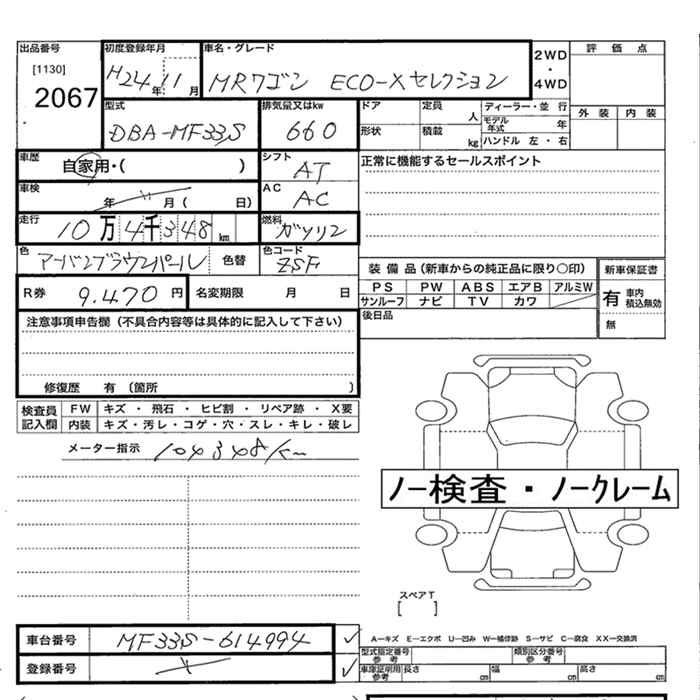 出品番号 初度登録年月 車名・グレード 2WD 評 価 点
[1130] H24年11月 MRワゴン ECO-Xセレクション ・
2067 4WD
型式 排気量又はkw ドア 定員 人 ディーラー・並 行 外 装 内 装
DBA-MF33S 660 形状 積載 kg モデル年式 年
ハンドル 左 ・ 右
車歴 自家用・( ) シフト AT 正常に機能するセールスポイント
車検 年 月 ( 日) AC AC
走行 10万4千348km 燃料 ガソリン
色 アーバンブラウンパール 色替 色コード ZSF
装 備 品 (新車からの純正品に限り○印) 新車保証書
R券 9.470 円 名変期限 月 日 PS PW ABS エアB アルミW 有 車内積込無効
サンルーフ ナビ TV カワ
注意事項申告欄 (不具合内容等は具体的に記入して下さい) 後日品 無
修復歴 有 (箇所 )
検査員記入欄 FW キズ ・ 飛石 ・ ヒビ割 ・ リペア跡 ・ X要
内装 キズ・汚レ・コゲ・穴・スレ・キレ・破レ
メーター指示 104348k
ノー検査・ノークレーム
スペアT
[ ]
車台番号 MF33S-614994 A―キズ E―エクボ U―凹み W―補修跡 S―サビ C―腐食 XX―交換済
登録番号 型式指定番号 参 考 類別区分番号 参 考
車庫証明用 参考 長さ cm 幅 cm 高さ cm